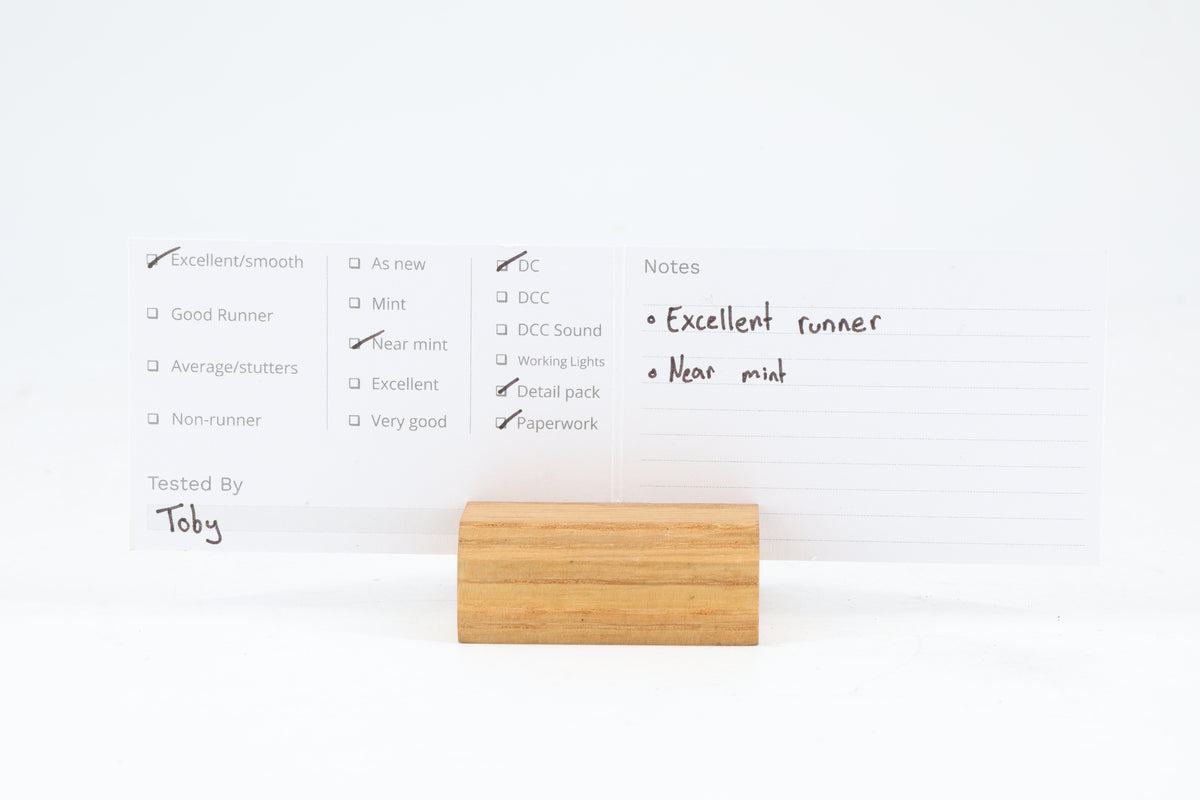 Excellent/smooth
Good Runner
Average/stutters
Non-runner
As new
Mint
Near mint
Excellent
Very good
DC
DCC
DCC Sound
Working Lights
Detail pack
Paperwork
Tested By
Toby
Notes
• Excellent runner
• Near mint